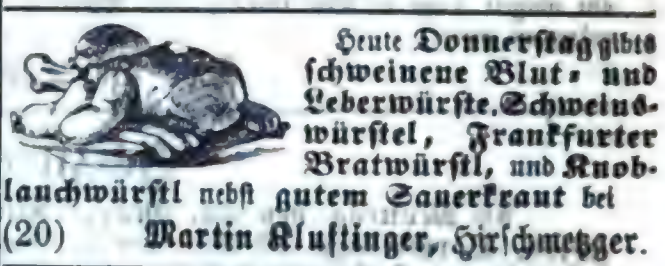 Heute Donnerstag gibts
schweinene Blut- und
Leberwürste, Schweins-
würstel, Frankfurter
Bratwürstl, und Knob-
lauchwürstl nebst gutem Sauerkraut bei
(20) Martin Kluftinger, Hirschmetzger.